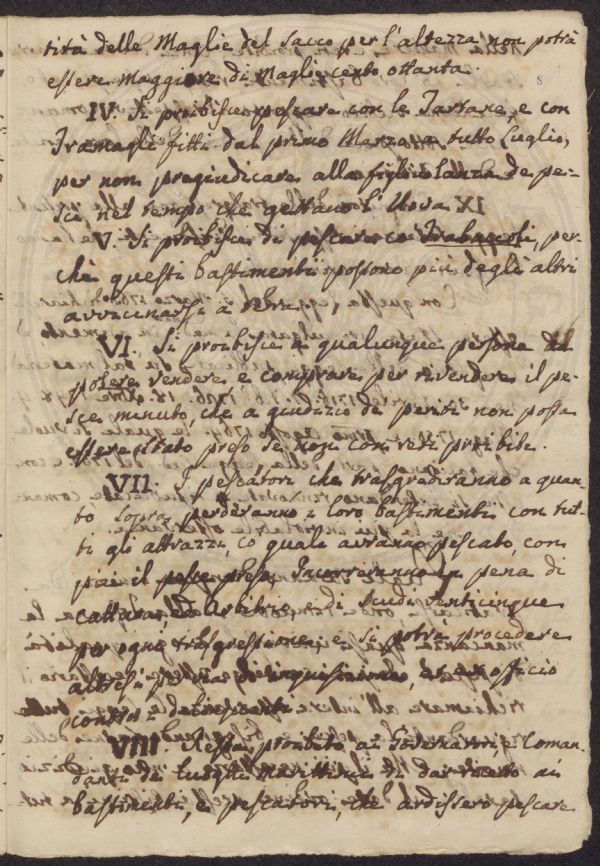 tità delle Maglie del sacco per l'altezza non potrà
essere maggiore di Maglie cento ottanta.
IV. Si proibisce pescare con le Tartane, e con
Tramagli fitti dal primo Marzo a tutto Luglio,
per non pregiudicare alla figliolanza de pe-
sci nel tempo che gettano l'Uova.
V. Si proibisce di pescare co Trabaccoli, per-
chè questi bastimenti possono più degli altri
avvicinarsi a terra.
VI. Si proibisce a qualunque persona il
potere vendere, e comprare per rivendere il pe-
sce minuto, che a giudizio de periti non possa
essere stato preso se non con reti proibite.
VII. I pescatori che trasgrediranno a quan-
to sopra perderanno i loro bastimenti con tut-
ti gli attrazzi, co quali avranno pescato, con
più il pesce preso, Incorreranno in pena di
cattura, ed Arbitrio, di Scudi venticinque
per ogni trasgressione, e si potrà procedere
altresì per via d'inquisizione, ed ex officio
contro i delinquenti
VIII Resta proibito ai Governatori, e Coman-
danti de luoghi Marittimi di dar ricetto ai
bastimenti, e pescatori, che ardissero pescare